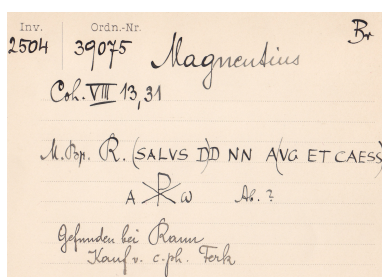 Inv. Ordn.-Nr. Br
2504 39075 Magnentius
Coh. VIII 13,31
R. (SALVS D)D NN A(VG ET CAESS)
A ☧ ω Ab. ?
Gefunden bei Rann
Kauf v. c. ph. Ferk